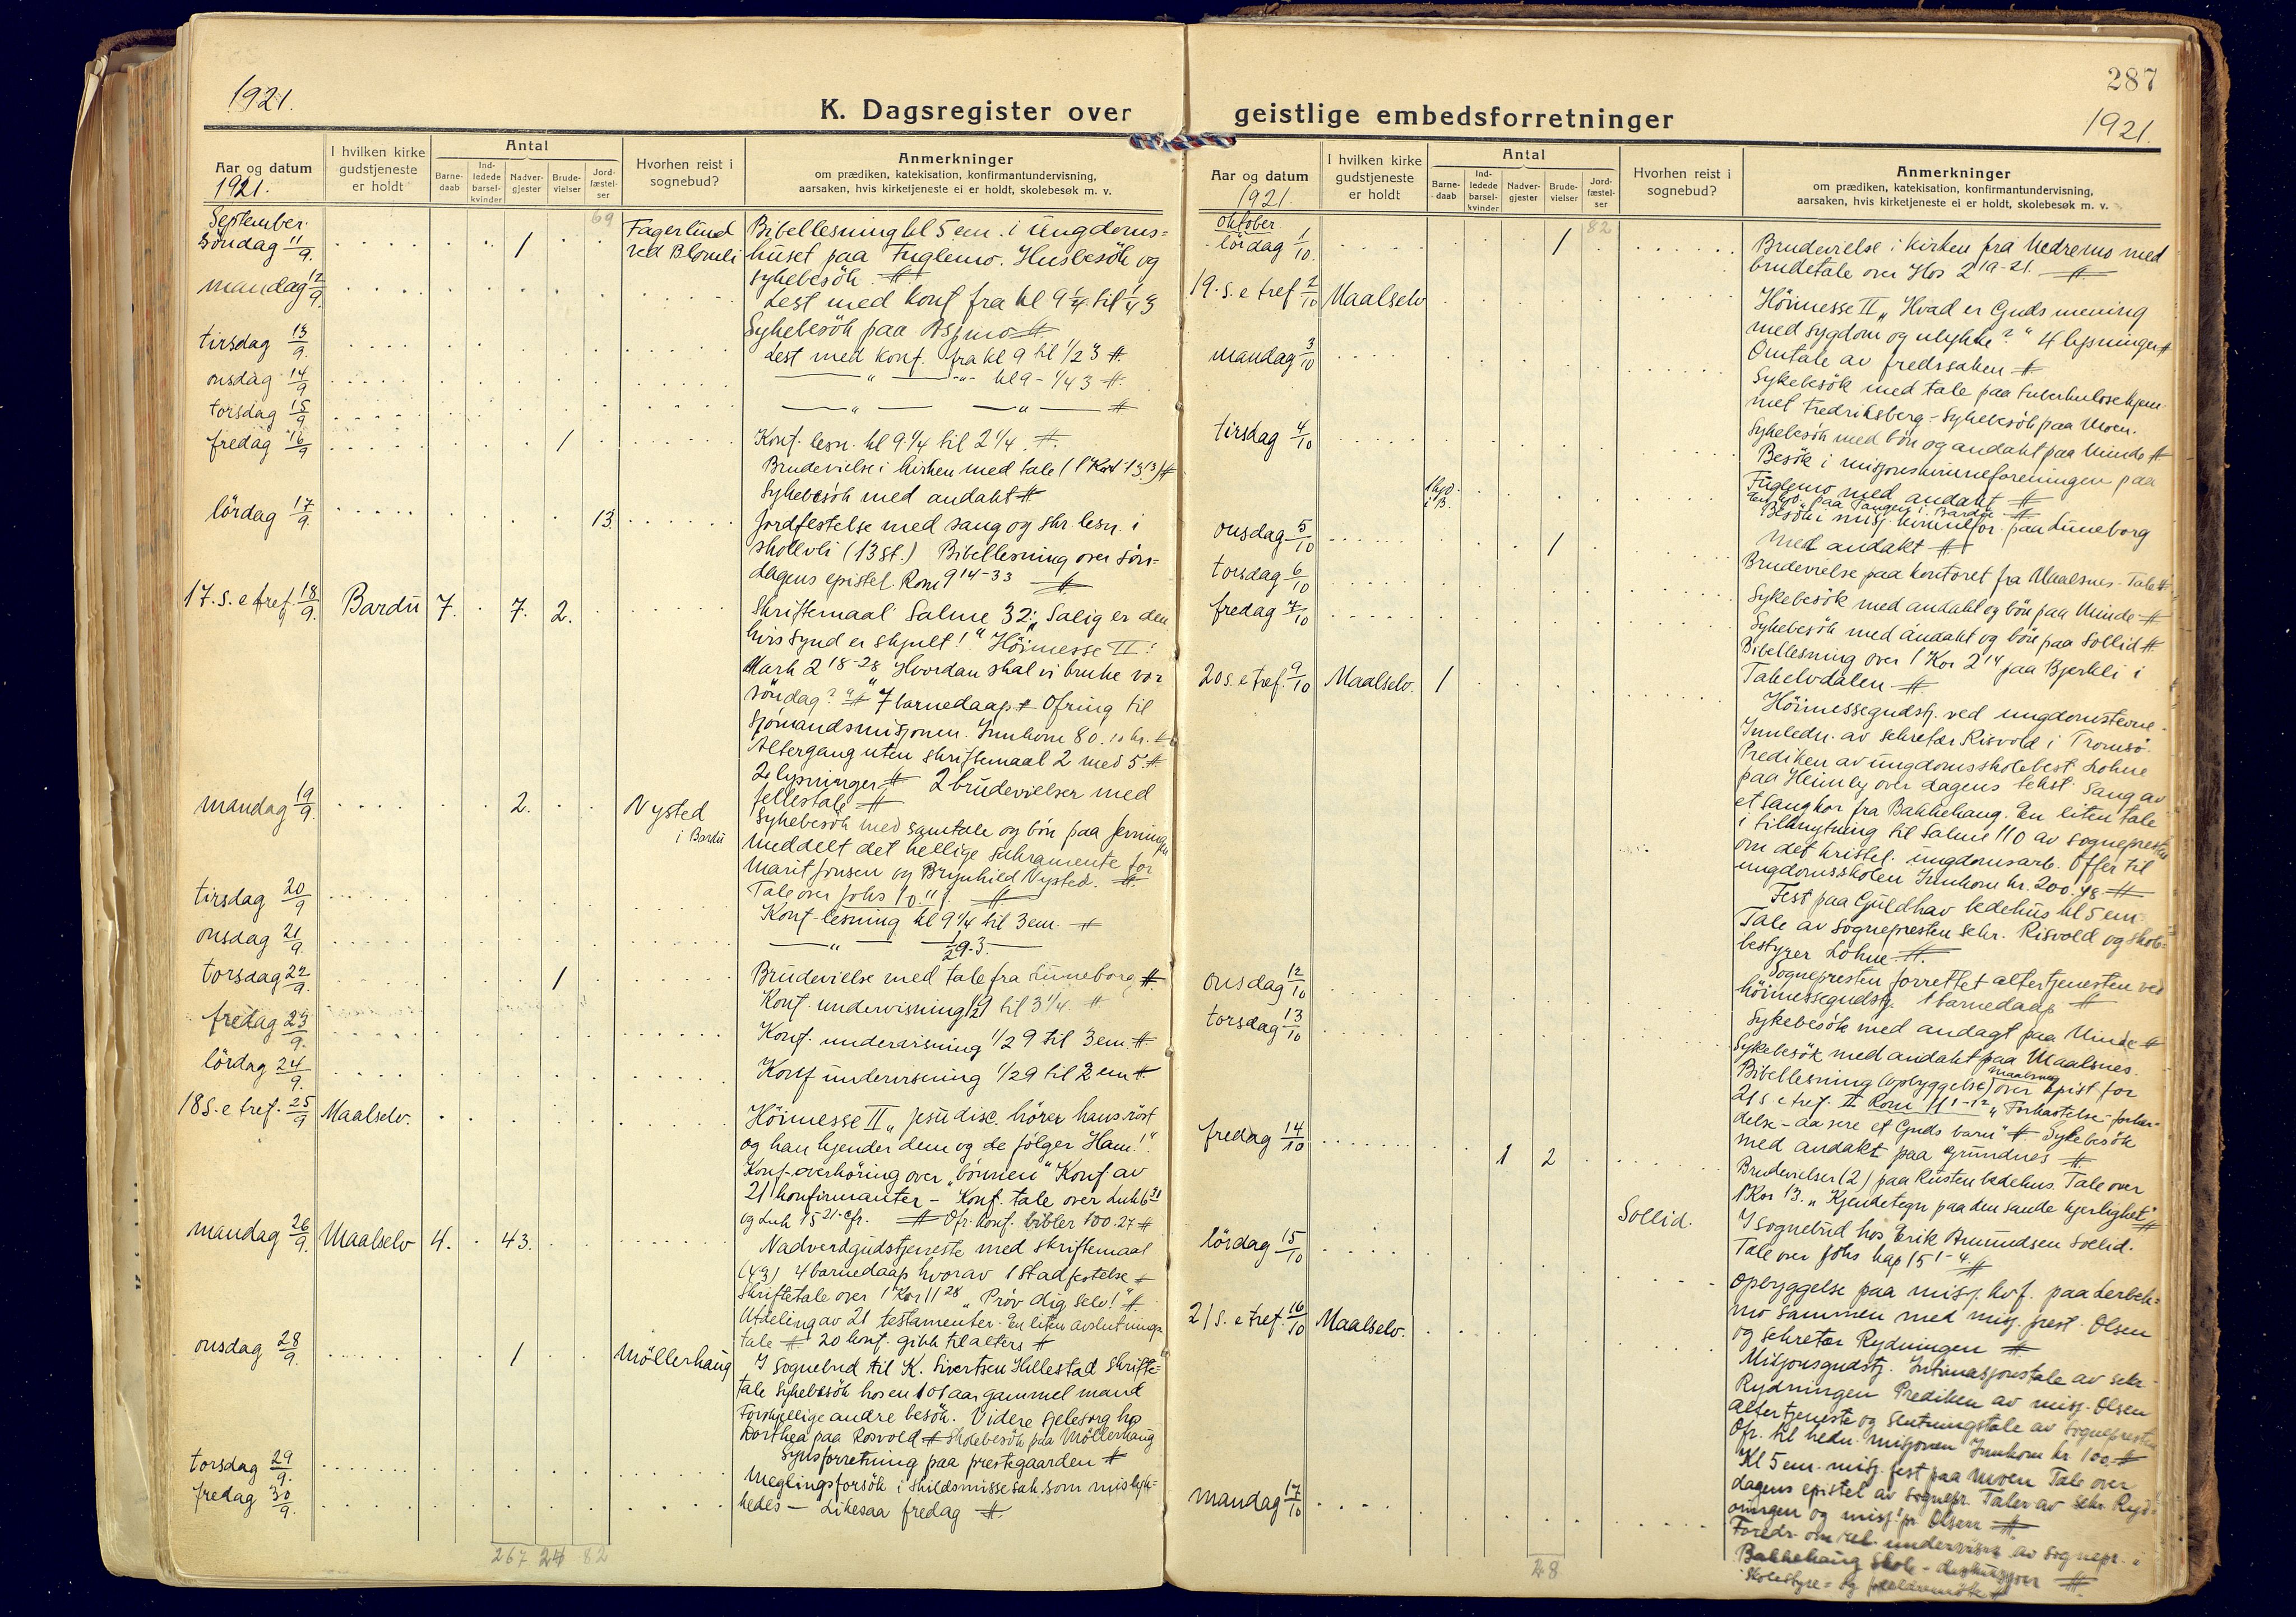 1921.
K. Dagsregister over
Aar og datum
1921.
I hvilken kirke
gudstjeneste
er holdt
Antal
Barne-
daab
Ind-
ledede
barsel-
kvinder
Nadver-
gjester
Brude-
vielser
Jord-
fæstel-
ser
Hvorhen reist i
sognebud?
Anmerkninger
om prædiken, katekisation, konfirmantundervisning,
aarsaken, hvis kirketjeneste ei er holdt, skolebesøk m. v.
69
September
Söndag 11/9. 1 Fagerlund Bibellesning kl 5 em. i Ungdoms=
ved Blomli huset paa Fuglemo. Husbesök og
sykebesök #
mandag 12/9. Lest med konf fra kl 9 1/4 til 1/4 3
Sykebesök paa Aspmo #
tirsdag 13/9. Lest med konf. fra kl 9 til 1/2 3 #
onsdag 14/9 — " — " — kl 9 - 1/4 3 #
torsdag 15/9 — " — — " — #
fredag 16/9 1 Konf. lesn. kl 9 1/4 til 2 1/4. #
Brudevielse i kirken med tale (1 Kor 13 13) #
Sykebesök med andakt #
lördag 17/9. 13. Jordfestelse med sang og skr lesn. i
skollvli (13 st.) Bibellesning over sön=
dagens epistel. Rom 9 14-33 #
17. s. e tref. 18/9. Bardu 7. 7. 2. Skriftemaal Salme 32: "Salig er den
hvis synd er skjult!" Höimesse II:
Mark 2 18-28 "Hvordan skal vi bruke vor
söndag?" # 7 barnedaap # Ofring til
Sjömandsmisjonen. Innkom 80. 10 kr. #
Altergang uten skriftemaal 2 med 5. #
2 lysninger # 2 brudevielser med
fellestale #
mandag 19/9. 2. Nysted Sykebesök med samtale og bön paa
i Bardu Meddelt det hellige sakramente for
Marit Jonsen og Brynhild Nysted. #
Tale over Johs 10. 11 f. #
tirsdag 20/9 Konf-lesning kl 9 1/4 til 3 em. #
onsdag 21/9. — " — 1/2 9-3 —
torsdag 22/9. 1 Brudevielse med tale fra Luneborg #.
Konf. undervisning 1/2 9 til 3 1/4. #
fredag 23/9. Konf. undervisning 1/2 9 til 3 em. #.
lördag 24/9. Konf undervisning 1/2 9 til 2 em #.
18 s. e tref. 25/9 Maalselv. Höimesse II "Jesu disc. hörer hans röst
og han kjender dem og de fölger Ham!".
Konf-overhöring over "bönnen" Konf. av
21 konfirmanter - Konf. tale over Luk 6 31
og Luk 15 21-efr. # Ofr. konf. bibler 100.27 #
mandag 26/9. Maalselv 4. 43. Nadverdgudstjeneste med skriftemaal
(43) 4 barnedaap hvorav 1 stadfestelse #
Skriftetale over 1 Kor 11 28 "Pröv dig selv!" #.
Utdeling av 21 testamenter. En liten avslutnings
tale # 20 konf. gikk til alters #
onsdag 28/9. 1 Möllerhaug I sognebud til K. Sivertsen Hellestad Skrifte=
tale Sykebesök hos en 101 aar gammel mand
Forskjellige andre besök. Videre sjelesorg hos
Dorthea paa Rosvold # Skolebesök paa Möllerhaug
torsdag 29/9. Synsforretning paa prestegaarden #
fredag 30/9. Meglingsforsök i skilsmissesak som mislyk=
kedes — Likesaa fredag #.
267 24 82
287
1921.
geistlige embedsforretninger
Aar og datum
1921.
I hvilken kirke
gudstjeneste
er holdt
Antal
Barne-
daab
Ind-
ledede
barsel-
kvinder
Nadver-
gjester
Brude-
vielser
Jord-
fæstel-
ser
Hvorhen reist i
sognebud?
Anmerkninger
om prædiken, katekisation, konfirmantundervisning,
aarsaken, hvis kirketjeneste ei er holdt, skolebesøk m. v.
82
Oktober
lördag 1/10. 1 Brudevielse i kirken fra Nedremo med
brudetale over Hos 2 19-21. #
19. s. e tref 2/10 Maalselv Höimesse II "Hvad er Guds mening
med sygdom og ulykke?" 4 lysninger #
Omtale av fredssaken #
mandag 3/10 Sykebesök med tale paa tuberkulosehjem
met Fredriksberg - Sykebesök paa Moen.
Sykebesök med bön og andakt paa Minde #
tirsdag 4/10 Besök i misjonskvinneforeningen paa
Fuglemo med andakt #
1 hjd. i B. En hjd. paa Tangen i Bardu #
onsdag 5/10 Besök i misj. kvinnefor. paa Luneborg
med andakt #
1 Brudevielse paa kontoret fra Maalsnes. Tale #
torsdag 6/10 Sykebesök med andakt og bön paa Minde #
fredag 7/10 Sykebesök med andakt og bön paa Sollid #
Bibellesning over 1 Kor 2 14 paa Bjerkli i
Takelvdalen #
20 s. e tref. 9/10 Maalselv. 1 Höimessegudstj. ved ungdomsstevne.
Innledn. av sekretær Risvold i Tromsö.
Prediken av ungdomsskolebest Lohne
paa Heimly over dagens tekst. Sang av
et sangkor fra Bakkehaug. En liten tale
i tilknytning til Salme 110 av sognepresten
om det kristel. ungdomsarb. Offer til
ungdomsskolen Innkom kr. 200.48 #
Fest paa Guldhav bedehus kl 5 em.
Tale av Sognepresten sekr. Risvold og skole=
bestyrer Lohne #
Sognepresten forrettet altertjenesten ved
höimessegudstj. 1 barnedaap #
onsdag 12/10 Sykebesök med andagt paa Minde #
torsdag 13/10 Sykebesök med andakt paa Maalsnes.
Bibellesning (opbyggelse) Maalsnes over epist for
21 s e tref. II Rom 11 1-12 "Forkastelse - forhær=
delse - da sere et Guds barn" # Sykebesök
med andakt paa Grundnes #.
fredag 14/10 1 2 Brudevielser (2) paa Rusten bedehus. Tale over
1 Kor 13. "Kjendetegn paa den sande kjerlighet" #
Sollid. I sognebud hos Erik Amundsen Sollid.
Tale over Johs kap 15 1-4. #
lördag 15/10 Opbyggelse paa misj. kvf. paa Olderbek=
mo sammen med misj. prest. Olsen
og sekretær Rydningen #
21 s. e tref. 16/10 Maalselv. Misjonsgudstj. Intimasjonstale av sekr.
Rydningen Prediken av misj. Olsen
Altertjeneste og Slutningstale av Sognepresten
Ofr. til hedn. misjonen Innkom kr. 100 #
Kl 5 em. misj. fest paa Moen Tale over
dagens epistel av sognepr. Taler av sekr. Ryd=
ningen og misj. pr. Olsen #
mandag 17/10 Foredr. om rel. undervisn. av sognepr. i
Bakkehaug Skole -
28